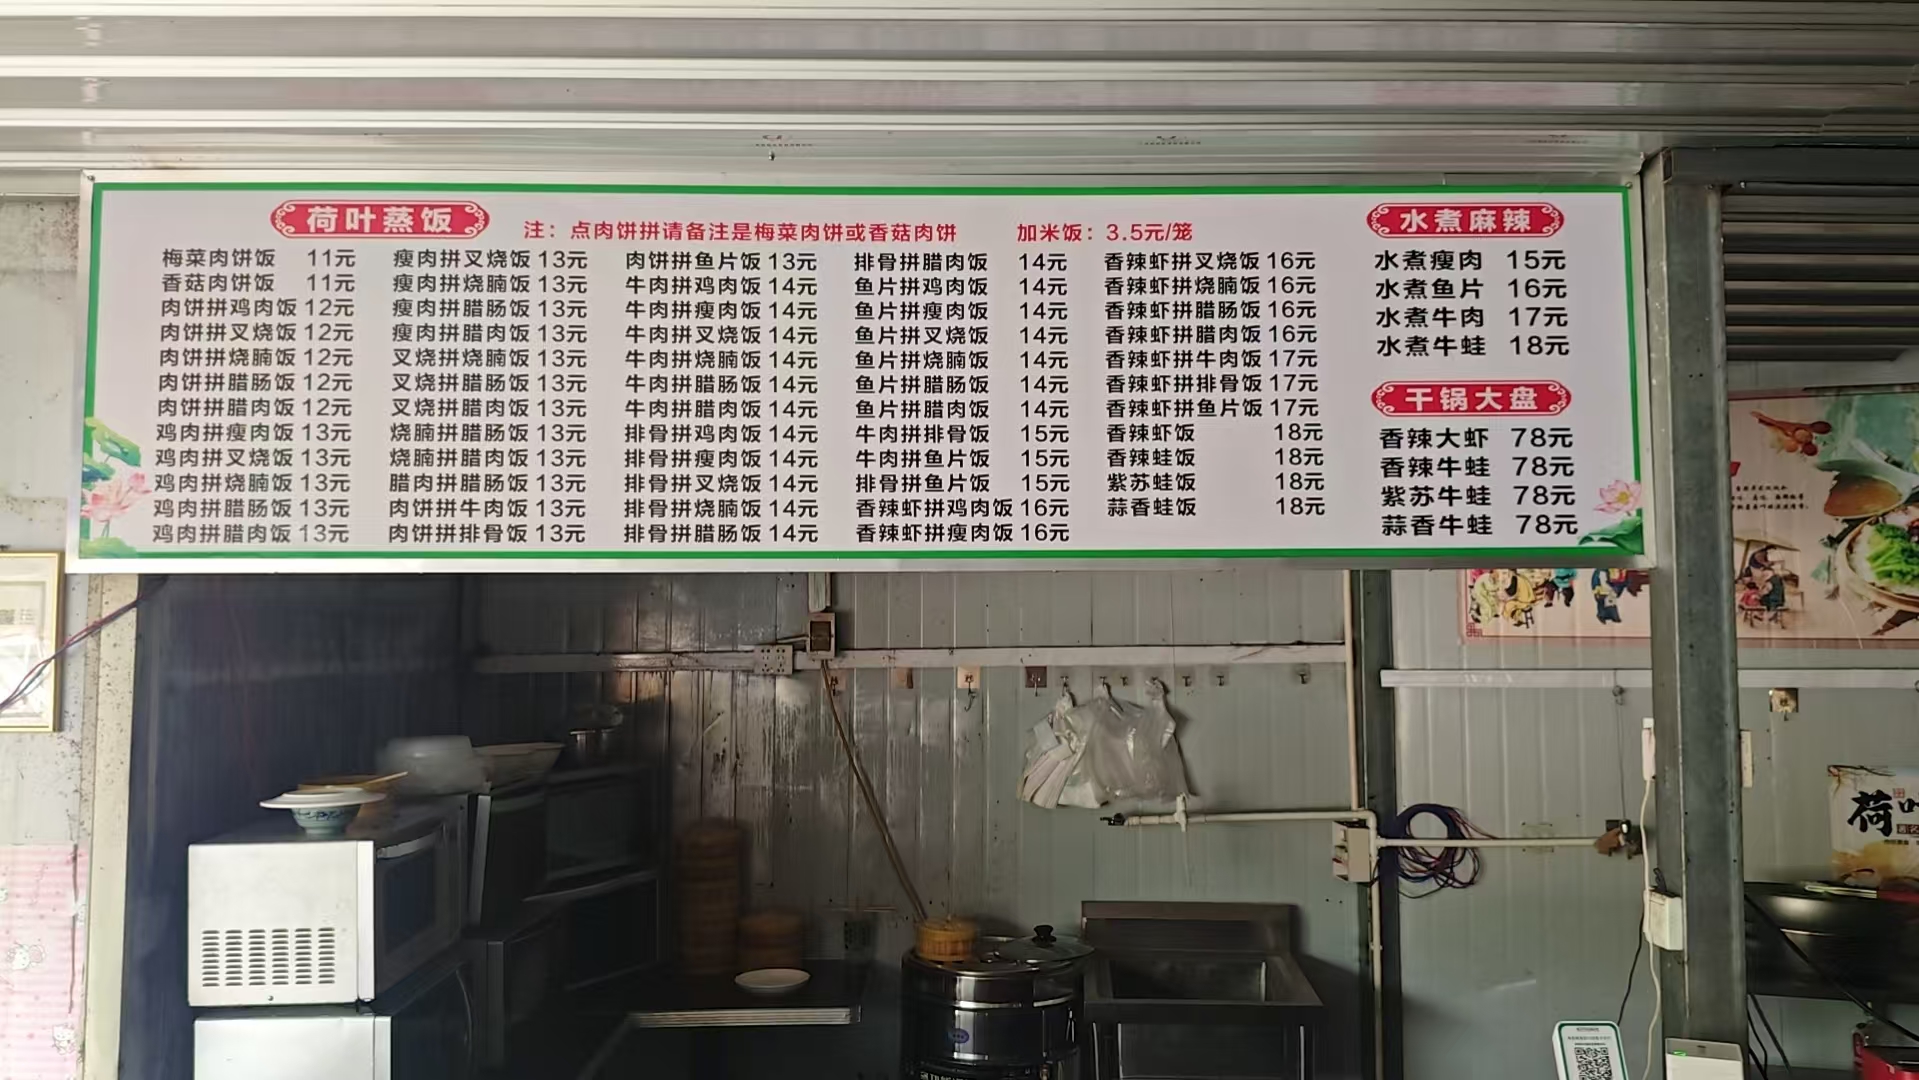 荷叶蒸饭
注：点肉饼拼请备注是梅菜肉饼或香菇肉饼
加米饭：3.5元/笼
梅菜肉饼饭 11元
香菇肉饼饭 11元
肉饼拼鸡肉饭 12元
肉饼拼叉烧饭 12元
肉饼拼烧腩饭 12元
肉饼拼腊肠饭 12元
肉饼拼腊肉饭 12元
鸡肉拼瘦肉饭 13元
鸡肉拼叉烧饭 13元
鸡肉拼烧腩饭 13元
鸡肉拼腊肠饭 13元
鸡肉拼腊肉饭 13元
瘦肉拼叉烧饭 13元
瘦肉拼烧腩饭 13元
瘦肉拼腊肠饭 13元
瘦肉拼腊肉饭 13元
叉烧拼烧腩饭 13元
叉烧拼腊肠饭 13元
叉烧拼腊肉饭 13元
烧腩拼腊肠饭 13元
烧腩拼腊肉饭 13元
腊肉拼腊肠饭 13元
肉饼拼牛肉饭 13元
肉饼拼排骨饭 13元
肉饼拼鱼片饭 13元
牛肉拼鸡肉饭 14元
牛肉拼瘦肉饭 14元
牛肉拼叉烧饭 14元
牛肉拼烧腩饭 14元
牛肉拼腊肠饭 14元
牛肉拼腊肉饭 14元
排骨拼鸡肉饭 14元
排骨拼瘦肉饭 14元
排骨拼叉烧饭 14元
排骨拼烧腩饭 14元
排骨拼腊肠饭 14元
排骨拼腊肉饭 14元
鱼片拼鸡肉饭 14元
鱼片拼瘦肉饭 14元
鱼片拼叉烧饭 14元
鱼片拼烧腩饭 14元
鱼片拼腊肠饭 14元
鱼片拼腊肉饭 14元
牛肉拼排骨饭 15元
牛肉拼鱼片饭 15元
排骨拼鱼片饭 15元
香辣虾拼鸡肉饭 16元
香辣虾拼瘦肉饭 16元
香辣虾拼叉烧饭 16元
香辣虾拼烧腩饭 16元
香辣虾拼腊肠饭 16元
香辣虾拼腊肉饭 16元
香辣虾拼牛肉饭 17元
香辣虾拼排骨饭 17元
香辣虾拼鱼片饭 17元
香辣虾饭 18元
香辣蛙饭 18元
紫苏蛙饭 18元
蒜香蛙饭 18元
水煮麻辣
水煮瘦肉 15元
水煮鱼片 16元
水煮牛肉 17元
水煮牛蛙 18元
干锅大盘
香辣大虾 78元
香辣牛蛙 78元
紫苏牛蛙 78元
蒜香牛蛙 78元
荷叶